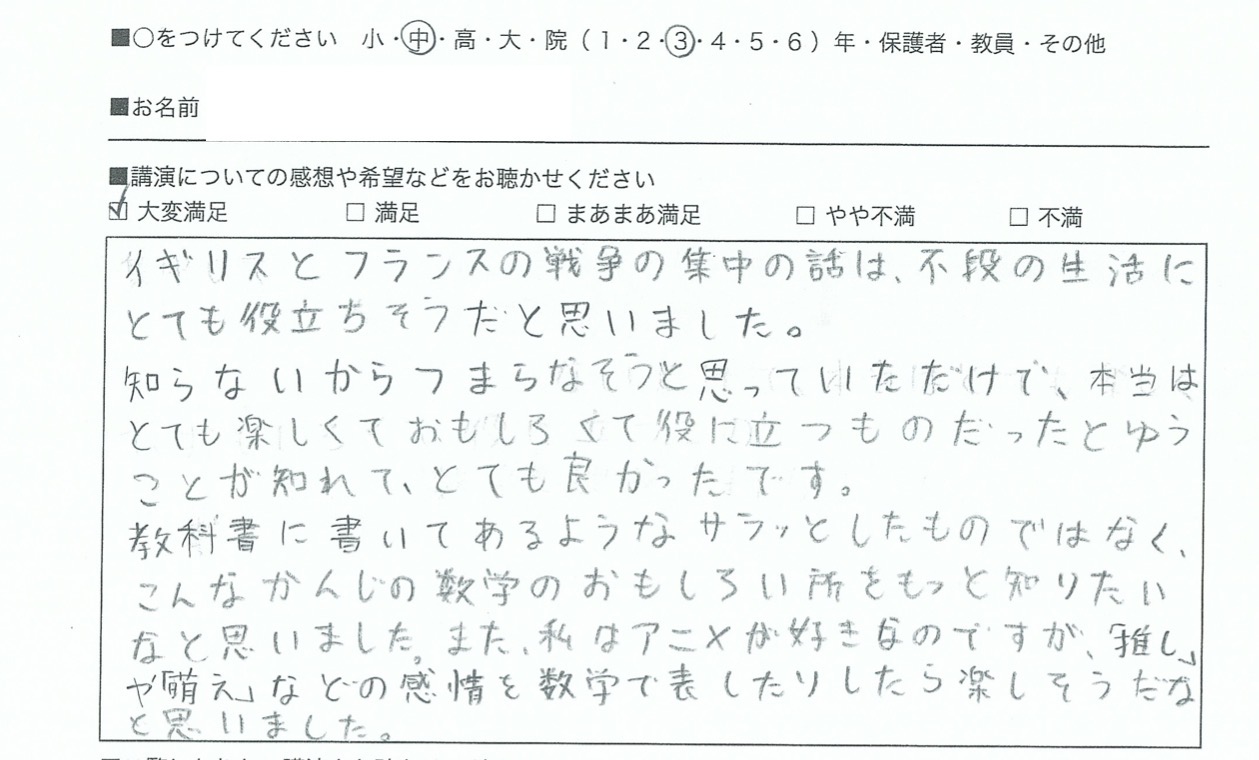 ■○をつけてください 小・中・高・大・院（1・2・3・4・5・6）年・保護者・教員・その他
■お名前
■講演についての感想や希望などをお聴かせください
☑ 大変満足 □ 満足 □ まあまあ満足 □ やや不満 □ 不満
イギリスとフランスの戦争の集中の話は、不段の生活に
とても役立ちそうだと思いました。
知らないからつまらなそうと思っていただけで、本当は
とても楽しくておもしろくて役に立つものだったとゆう
ことが知れて、とても良かったです。
教科書に書いてあるようなサラッとしたものではなく、
こんなかんじの数学のおもしろい所をもっと知りたい
なと思いました。また、私はアニメが好きなのですが、「推し」
や「萌え」などの感情を数学で表したりしたら楽しそうだな
と思いました。